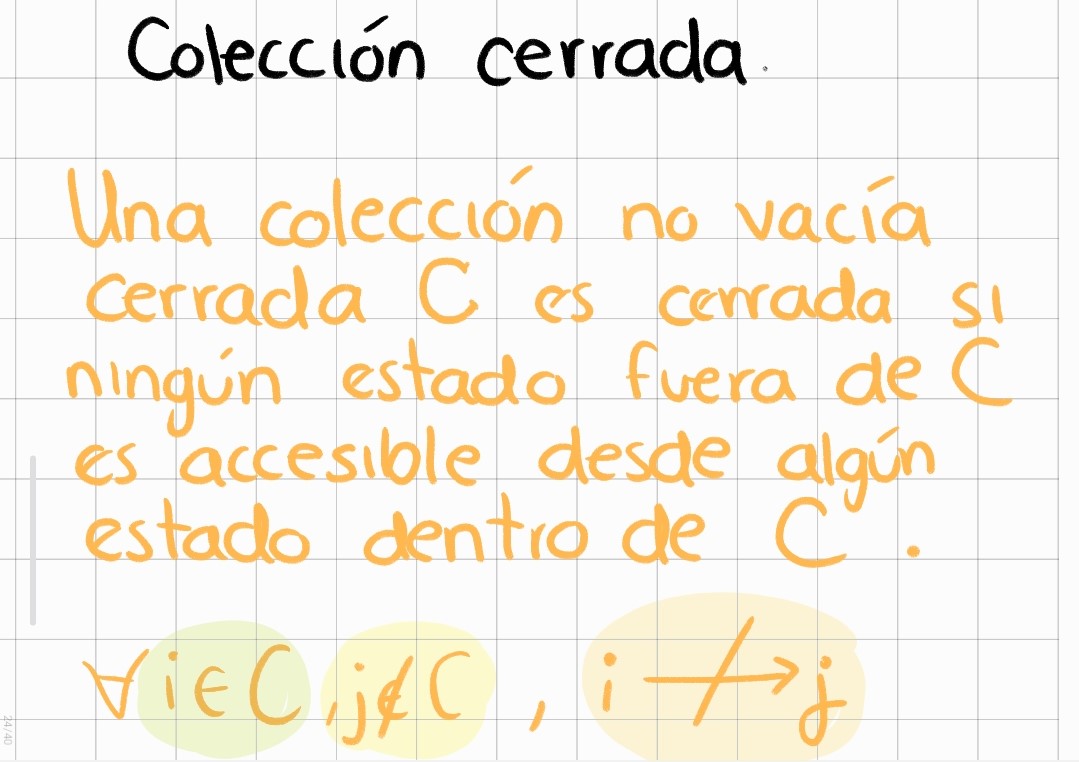 Colección cerrada.
Una colección no vacía
cerrada C es cerrada si
ningún estado fuera de C
es accesible desde algún
estado dentro de C.
∀ i ∈ C, j ∉ C, i ↛ j
24/40